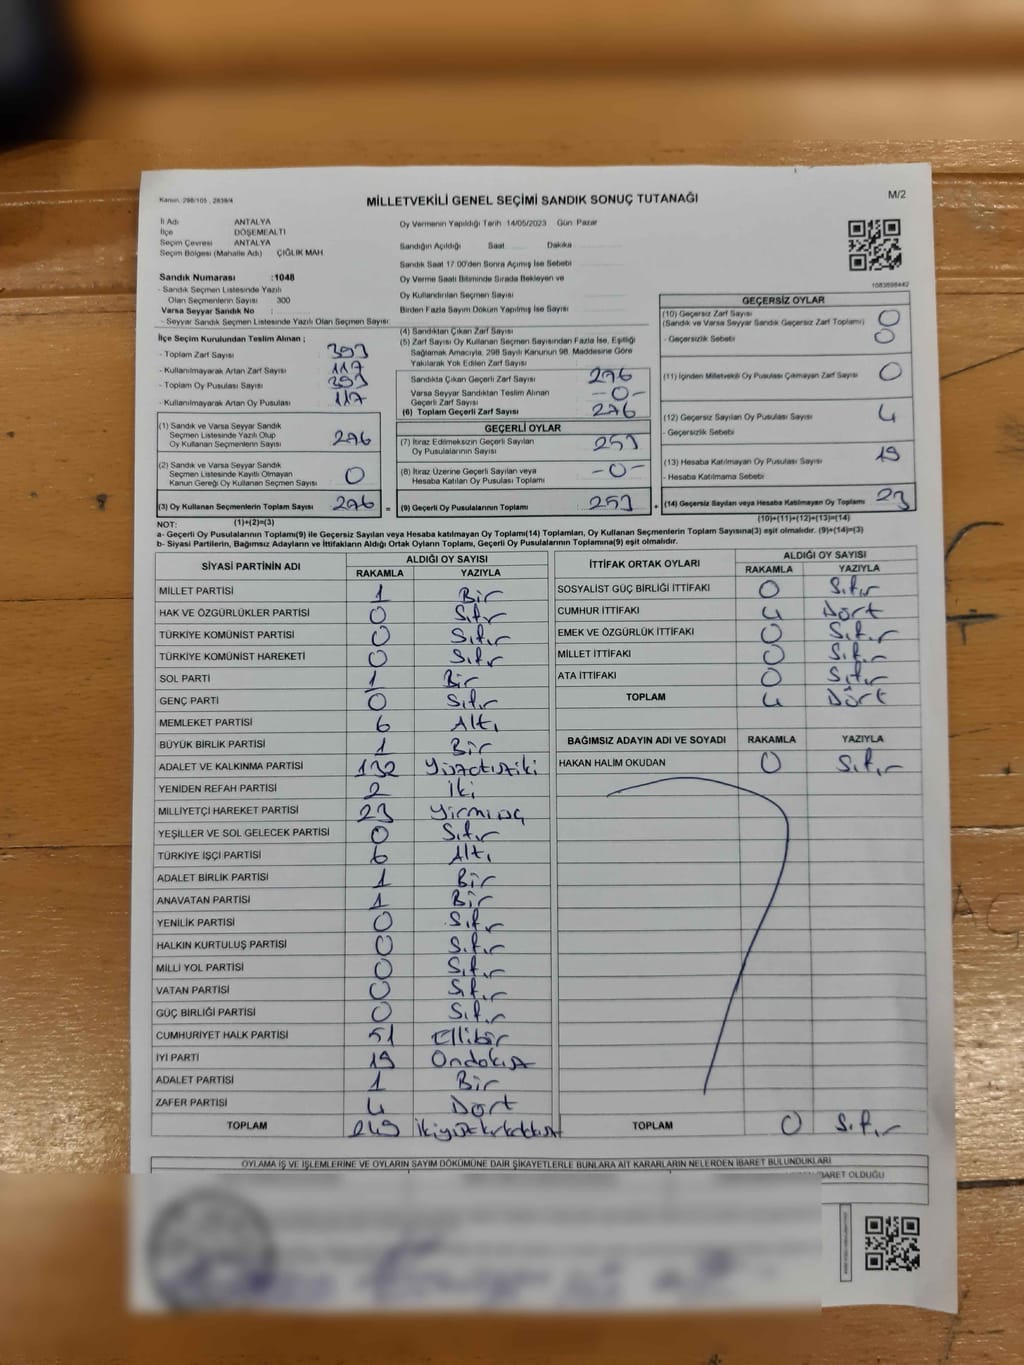 Kanun, 298/105 , 2839/4
MİLLETVEKİLİ GENEL SEÇİMİ SANDIK SONUÇ TUTANAĞI
M/2
İl Adı ANTALYA
İlçe DÖŞEMEALTI
Seçim Çevresi ANTALYA
Seçim Bölgesi (Mahalle Adı) ÇIĞLIK MAH.
Sandık Numarası :1048
- Sandık Seçmen Listesinde Yazılı
Olan Seçmenlerin Sayısı 300
Varsa Seyyar Sandık No :
- Seyyar Sandık Seçmen Listesinde Yazılı Olan Seçmen Sayısı:
Oy Vermenin Yapıldığı Tarih 14/05/2023 Gün Pazar
Sandığın Açıldığı Saat Dakika
Sandık Saat 17.00'den Sonra Açılmış İse Sebebi
Oy Verme Saati Bitiminde Sırada Bekleyen ve
Oy Kullandırılan Seçmen Sayısı
Birden Fazla Sayım Döküm Yapılmış İse Sayısı
1083898442
İlçe Seçim Kurulundan Teslim Alınan ;
- Toplam Zarf Sayısı 393
- Kullanılmayarak Artan Zarf Sayısı 117
- Toplam Oy Pusulası Sayısı 393
- Kullanılmayarak Artan Oy Pusulası 117
(1) Sandık ve Varsa Seyyar Sandık
Seçmen Listesinde Yazılı Olup
Oy Kullanan Seçmenlerin Sayısı 276
(2) Sandık ve Varsa Seyyar Sandık
Seçmen Listesinde Kayıtlı Olmayan
Kanun Gereği Oy Kullanan Seçmen Sayısı 0
(3) Oy Kullanan Seçmenlerin Toplam Sayısı 276 =
(1)+(2)=(3)
(4) Sandıktan Çıkan Zarf Sayısı
(5) Zarf Sayısı Oy Kullanan Seçmen Sayısından Fazla İse, Eşitliği
Sağlamak Amacıyla, 298 Sayılı Kanunun 98. Maddesine Göre
Yakılarak Yok Edilen Zarf Sayısı :
Sandıkta Çıkan Geçerli Zarf Sayısı 276
Varsa Seyyar Sandıktan Teslim Alınan
Geçerli Zarf Sayısı -0-
(6) Toplam Geçerli Zarf Sayısı 276
GEÇERLİ OYLAR
(7) İtiraz Edilmeksizin Geçerli Sayılan
Oy Pusulalarının Sayısı 253
(8) İtiraz Üzerine Geçerli Sayılan veya
Hesaba Katılan Oy Pusulası Toplamı -0-
(9) Geçerli Oy Pusulalarının Toplamı 253 +
GEÇERSİZ OYLAR
(10) Geçersiz Zarf Sayısı 0
(Sandık ve Varsa Seyyar Sandık Geçersiz Zarf Toplamı)
- Geçersizlik Sebebi 0
(11) İçinden Milletvekili Oy Pusulası Çıkmayan Zarf Sayısı 0
(12) Geçersiz Sayılan Oy Pusulası Sayısı 4
- Geçersizlik Sebebi
(13) Hesaba Katılmayan Oy Pusulası Sayısı 19
- Hesaba Katılmama Sebebi
(14) Geçersiz Sayılan veya Hesaba Katılmayan Oy Toplamı 23
(10)+(11)+(12)+(13)=(14)
NOT:
a- Geçerli Oy Pusulalarının Toplamı(9) ile Geçersiz Sayılan veya Hesaba katılmayan Oy Toplamı(14) Toplamları, Oy Kullanan Seçmenlerin Toplam Sayısına(3) eşit olmalıdır. (9)+(14)=(3)
b- Siyasi Partilerin, Bağımsız Adayların ve İttifakların Aldığı Ortak Oyların Toplamı, Geçerli Oy Pusulalarının Toplamına(9) eşit olmalıdır.
SİYASİ PARTİNİN ADI ALDIĞI OY SAYISI
RAKAMLA YAZIYLA
MİLLET PARTİSİ 1 Bir
HAK VE ÖZGÜRLÜKLER PARTİSİ 0 Sıfır
TÜRKİYE KOMÜNİST PARTİSİ 0 Sıfır
TÜRKİYE KOMÜNİST HAREKETİ 0 Sıfır
SOL PARTİ 1 Bir
GENÇ PARTİ 0 Sıfır
MEMLEKET PARTİSİ 6 Altı
BÜYÜK BİRLİK PARTİSİ 1 Bir
ADALET VE KALKINMA PARTİSİ 132 Yüzotuziki
YENİDEN REFAH PARTİSİ 2 İki
MİLLİYETÇİ HAREKET PARTİSİ 23 Yirmiüç
YEŞİLLER VE SOL GELECEK PARTİSİ 0 Sıfır
TÜRKİYE İŞÇİ PARTİSİ 6 Altı
ADALET BİRLİK PARTİSİ 1 Bir
ANAVATAN PARTİSİ 1 Bir
YENİLİK PARTİSİ 0 Sıfır
HALKIN KURTULUŞ PARTİSİ 0 Sıfır
MİLLİ YOL PARTİSİ 0 Sıfır
VATAN PARTİSİ 0 Sıfır
GÜÇ BİRLİĞİ PARTİSİ 0 Sıfır
CUMHURİYET HALK PARTİSİ 51 Ellibir
İYİ PARTİ 19 Ondokuz
ADALET PARTİSİ 1 Bir
ZAFER PARTİSİ 4 Dört
TOPLAM 249 İkiyüzkırkdokuz
İTTİFAK ORTAK OYLARI ALDIĞI OY SAYISI
RAKAMLA YAZIYLA
SOSYALİST GÜÇ BİRLİĞİ İTTİFAKI 0 Sıfır
CUMHUR İTTİFAKI 4 Dört
EMEK VE ÖZGÜRLÜK İTTİFAKI 0 Sıfır
MİLLET İTTİFAKI 0 Sıfır
ATA İTTİFAKI 0 Sıfır
TOPLAM 4 Dört
BAĞIMSIZ ADAYIN ADI VE SOYADI RAKAMLA YAZIYLA
HAKAN HALİM OKUDAN 0 Sıfır
TOPLAM 0 Sıfır
OYLAMA İŞ VE İŞLEMLERİNE VE OYLARIN SAYIM DÖKÜMÜNE DAİR ŞİKAYETLERLE BUNLARA AİT KARARLARIN NELERDEN İBARET BULUNDUKLARI
İBARET OLDUĞU